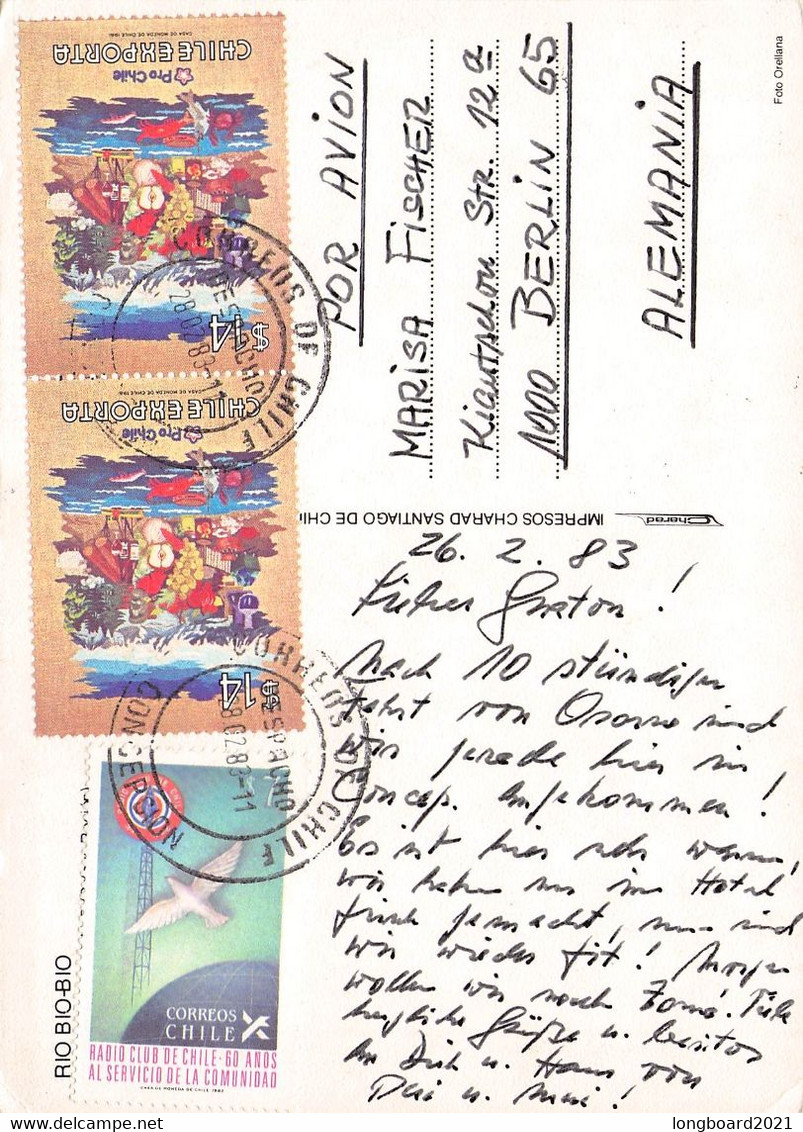 26. 2. 83
Lieber !
Nach 10 stündiger
Fahrt von Osorno sind
wir gerade hier in
Concep. angekommen!
Es ist hier sehr warm,
wir haben uns im Hotel
frisch gemacht, nun sind
wir wieder fit! Morgen
wollen wir nach Tomé. Viele
herzliche Grüße u. besitos
an Dich u. Hans von
u. !
POR AVION
MARISA FISCHER
Kiautschou Str. 12a
1000 BERLIN 65
ALEMANIA
Foto Orellana
IMPRESOS CHARAD SANTIAGO DE CHI
Charad
RIO BIO-BIO
Pro Chile
CHILE EXPORTA
CASA DE MONEDA DE CHILE 1981
$14
Pro Chile
CHILE EXPORTA
CASA DE MONEDA DE CHILE 1981
$14
CORREOS DE CHILE
DESPACHO
28.02.83-11
CORREOS DE CHILE
DESPACHO
28.02.83-11
CONCEPCION
CORREOS
CHILE
RADIO CLUB DE CHILE - 60 AÑOS
AL SERVICIO DE LA COMUNIDAD
CASA DE MONEDA DE CHILE 1982
longboard2021